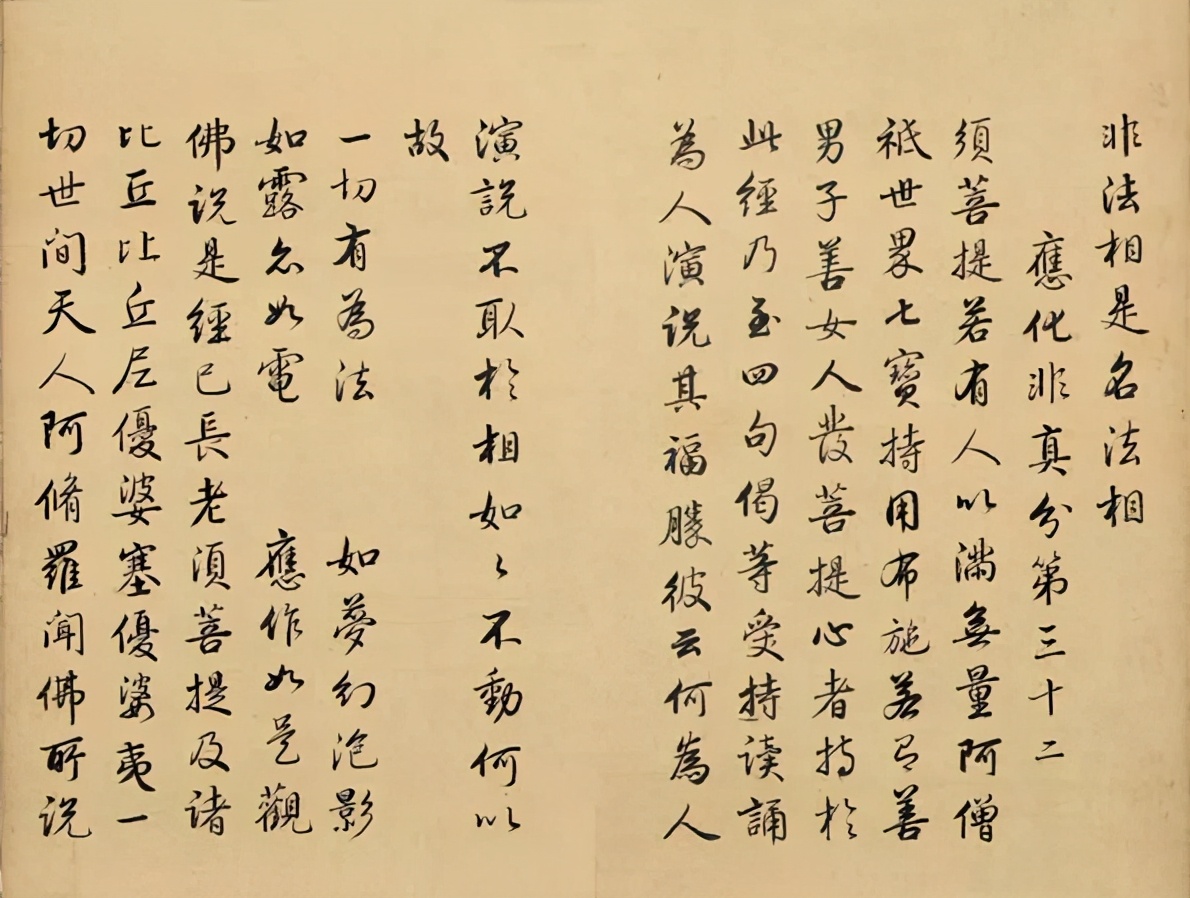 非法相是名法相
應化非真分第三十二
須菩提若有人以滿無量阿僧
祇世界七寶持用布施若有善
男子善女人發菩提心者持於
此經乃至四句偈等受持读誦
為人演说其福勝彼云何為人
演説不取於相如々不動何以
故
一切有為法 如夢幻泡影
如露亦如電 應作如是觀
佛说是經已長老須菩提及诸
比丘比丘尼優婆塞優婆夷一
切世间天人阿脩羅闻佛所说